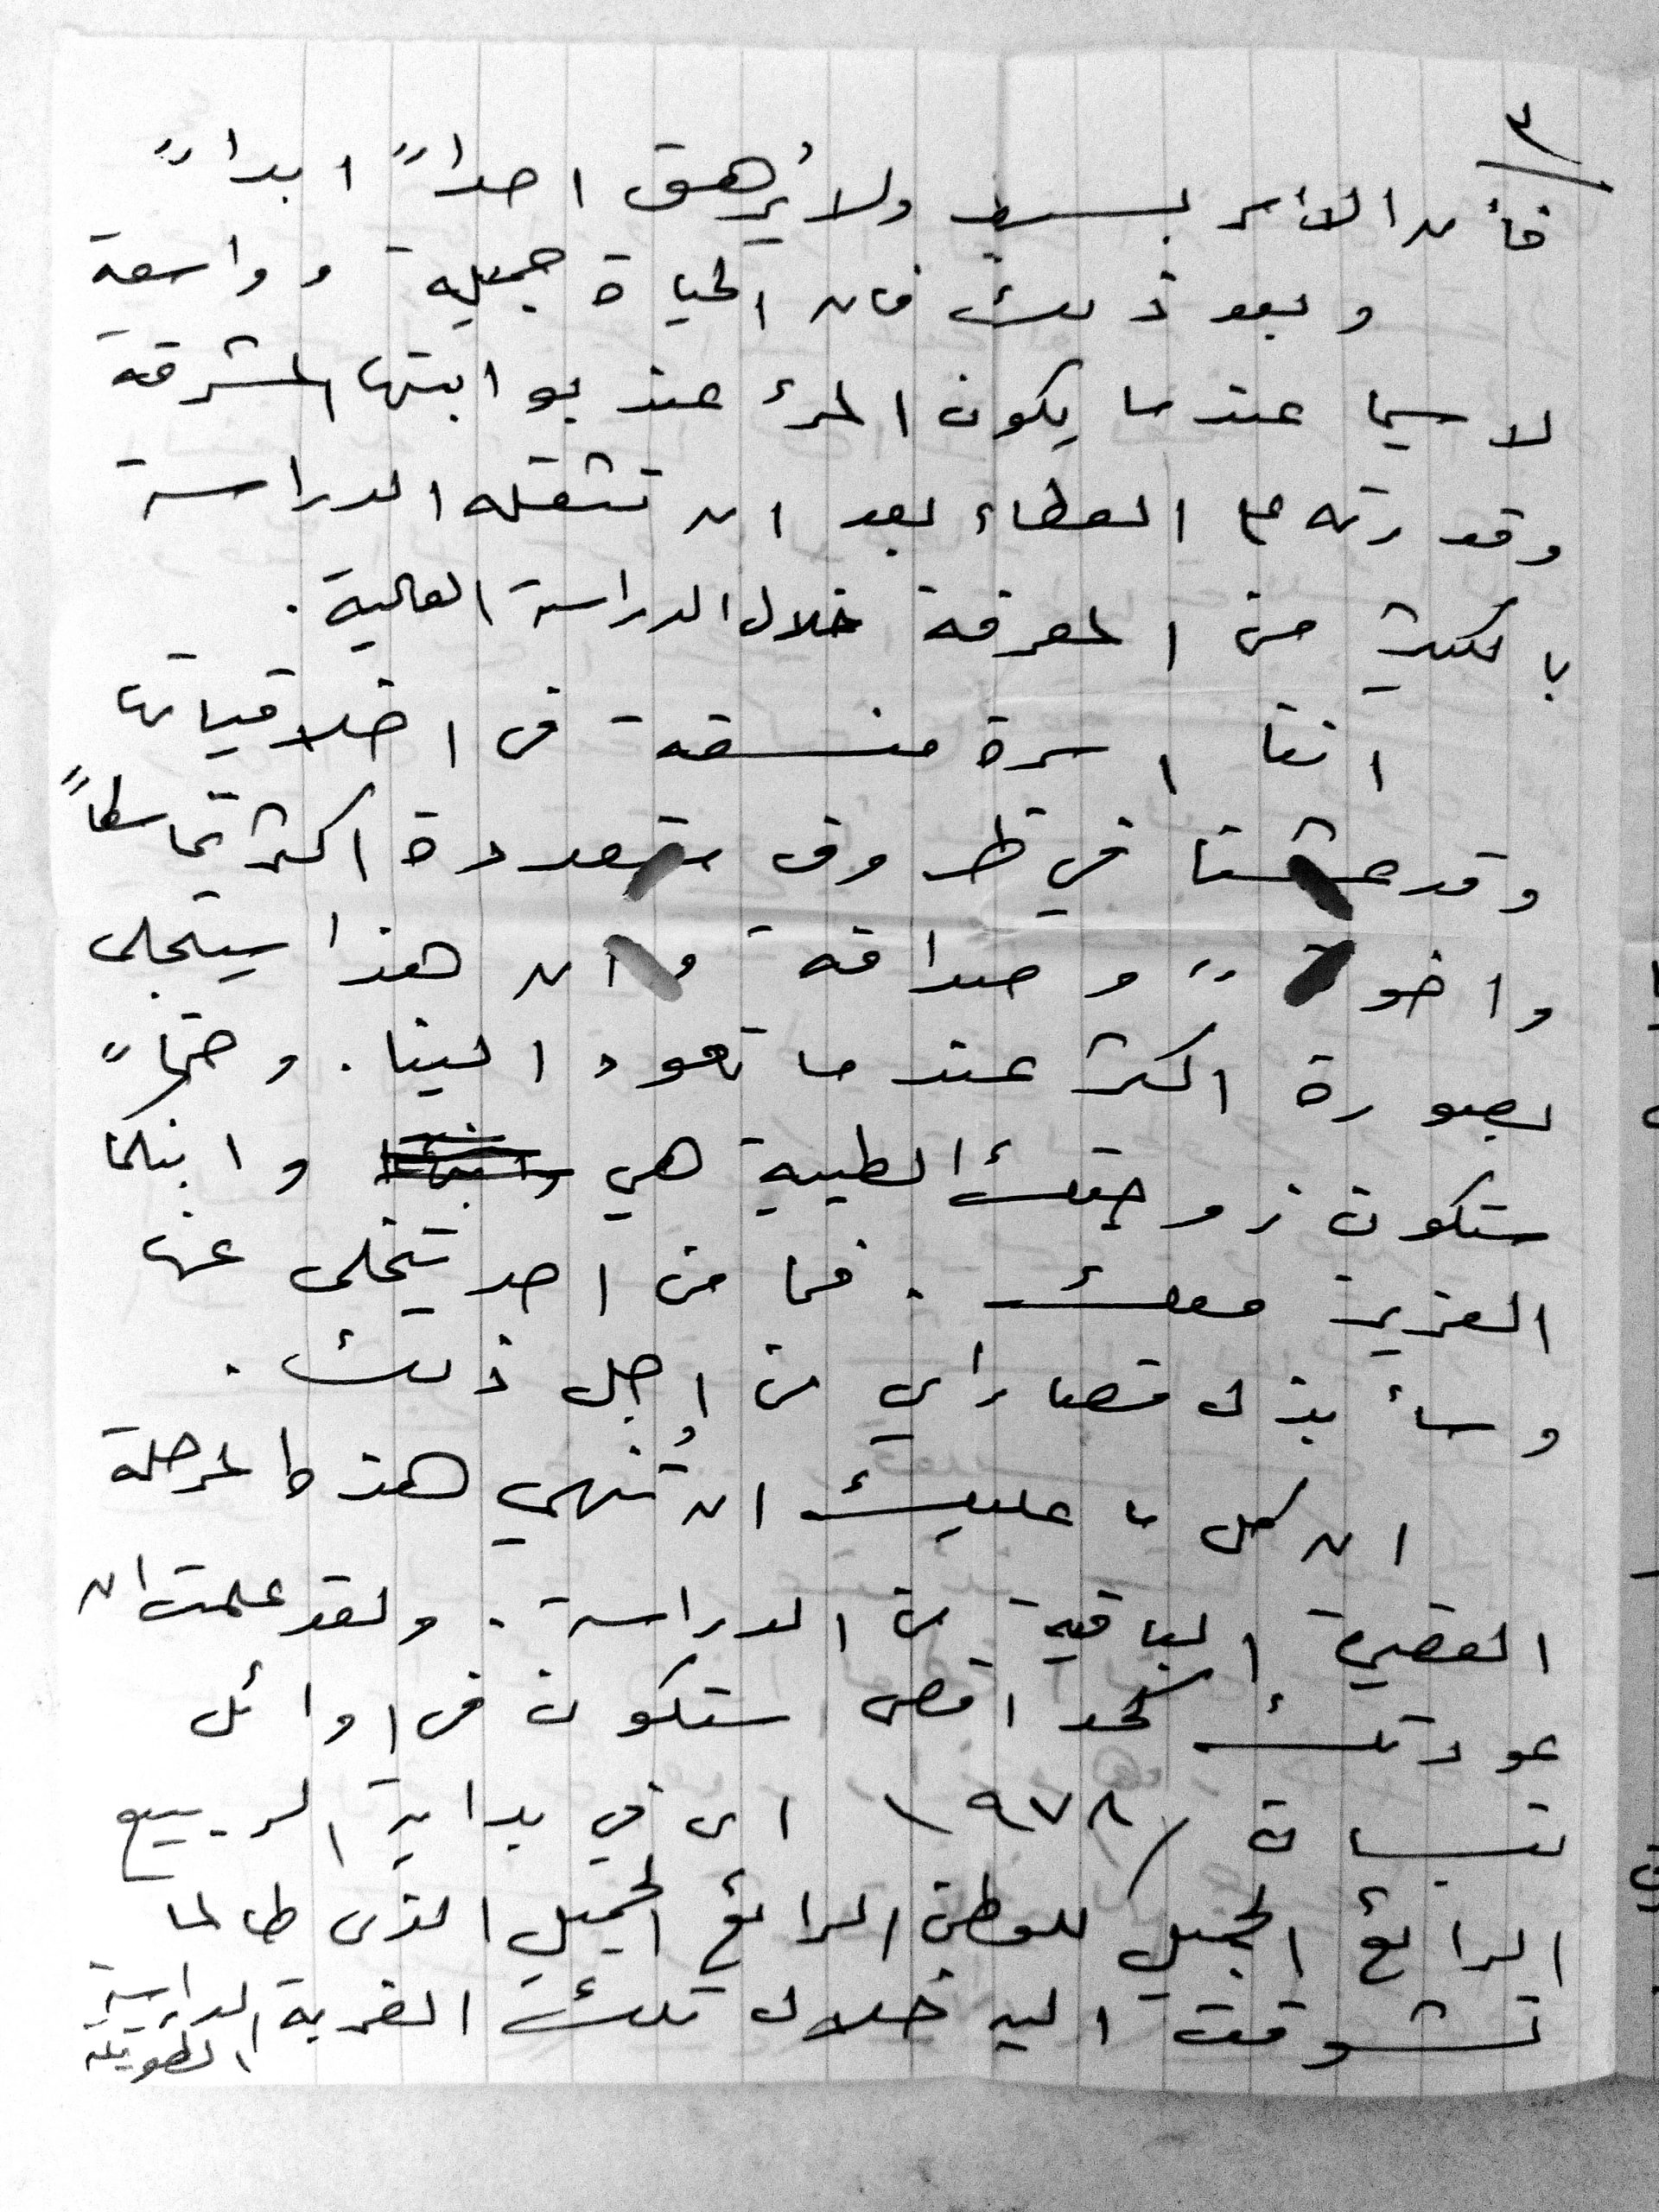 ٣
فأن الأمر بسيط ولا يُرهق احداً ابداً
وبعد ذلك فان الحياة جميلة وواسعة
لا سيما عندما يكون المرء عند بوابتها المشرقة
وقدرته على العطاء بعد ان تثقله الدراسة
بالكثير من المعرفة خلال الدراسة العالية.
اننا اسرة منسقة في اخلاقياتها
وقد عشنا في ظروف متعددة اكثر تماسكاً
واخوة وصداقة وان هذا سيتجلى
بصورة اكثر عندما تعود الينا. وحتماً
ستكون زوجتك الطيبة هي وابنكما
العزيز معك. فما من احد يتخلى عنها
وسأبذل قصاراي من اجل ذلك.
ان كل ما عليك ان تُنهي هذه المرحلة
القصيرة الباقية من الدراسة. ولقد علمت ان
عودتك كحد اقصى ستكون في اوائل
نيسان / ١٩٧٨ اى في بداية الربيع
الرائع الجميل للوطن الرائع الجميل الذي طالما
تشوقت اليه خلال تلك الغربة الدراسية
الطويلة